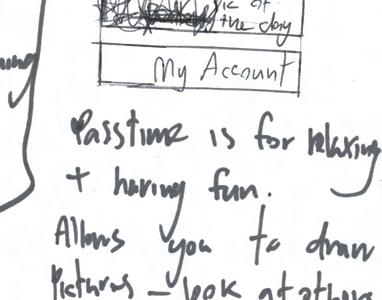 Pic of
the day
My Account
Passtime is for relaxing
+ having fun.
Allows you to draw
Pictures - look at others